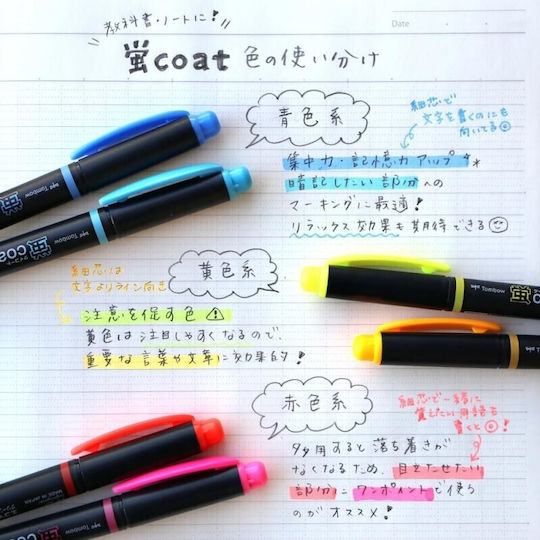 教科書・ノートに!
Date
蛍coat 色の使い分け
青色系
細芯で
文字を書くのにも
向いてる
集中力・記憶力アップ
暗記したい部分への
マーキングに最適!
リラックス効果も期待できる
Tombow
蛍coat
Tombow
黄色系
細芯は
文字よりライン向き
注意を促す色
黄色は注目しやすくなるので、
重要な言葉や文章に効果的!
Tombow
蛍
Tombow
赤色系
細芯で一緒に
多用すると落ち着きが
なくなるため、目立たせたい
部分にワンポイントで使う
のがオススメ!
書くと◎!
MADE IN JAPAN
Tombow